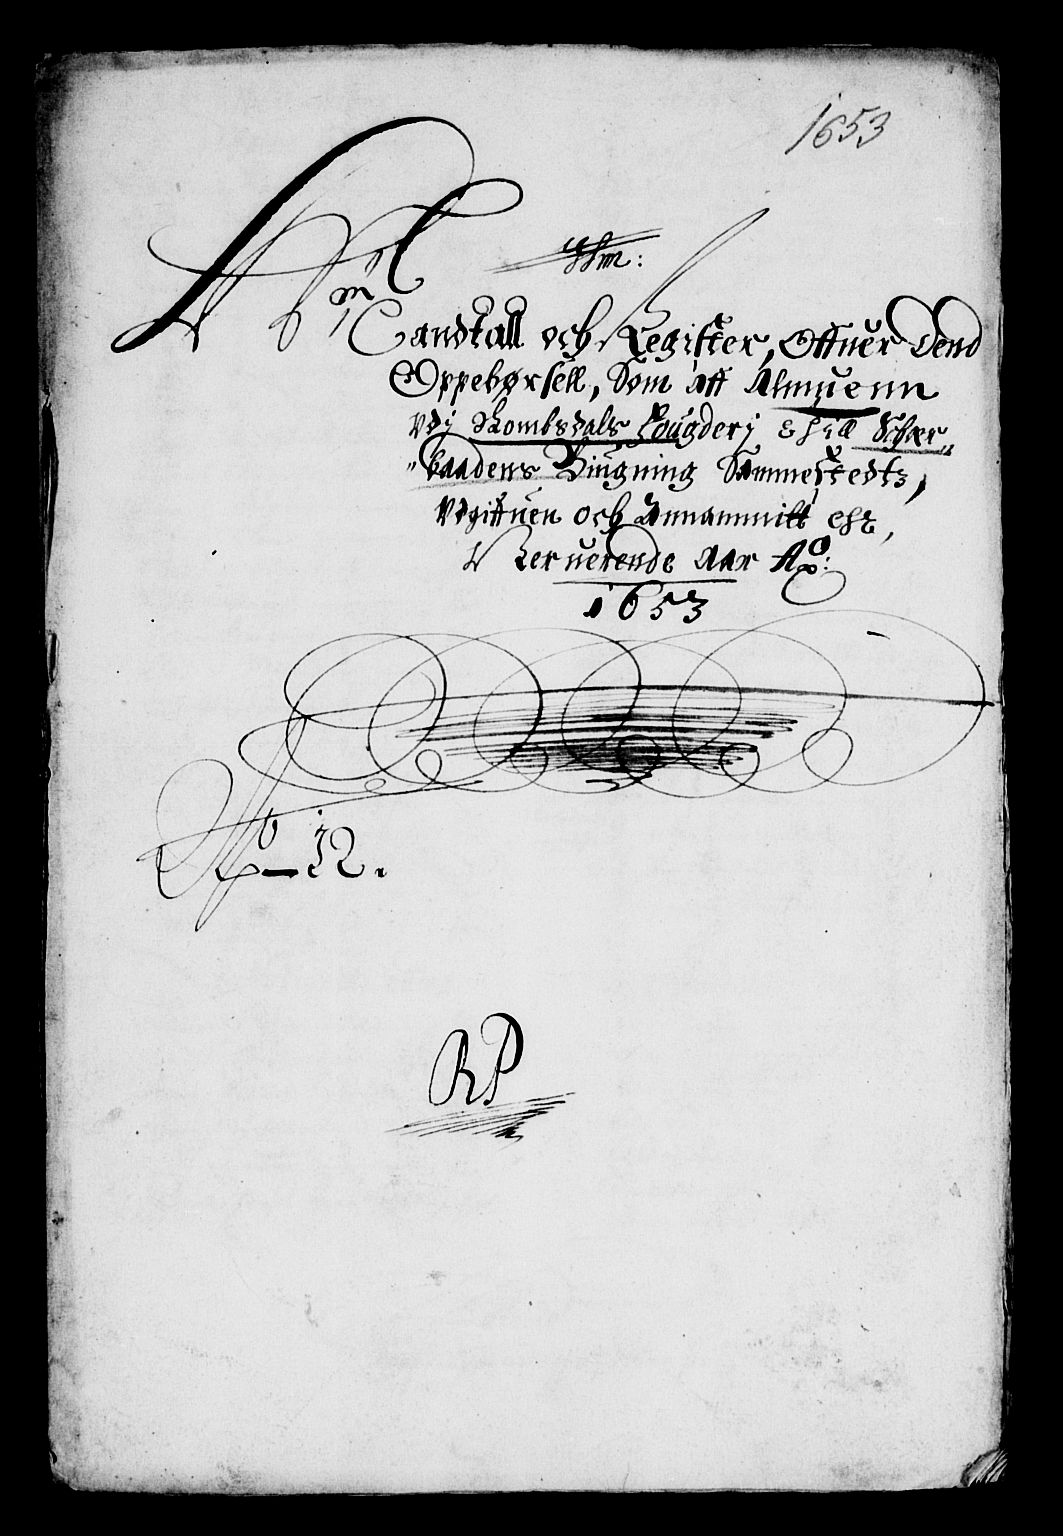 1653
Mandtall och Register, Offuer Dend
Oppebørsell, Som aff Almuenn
Vdj Rombsdals Fougderj Schær„
„baadens Biugning Sammestedtz,
Vdgiffuen och Annammitt ehr,
Neruerende Aar Aō:
1653
N̊ 12.
RP